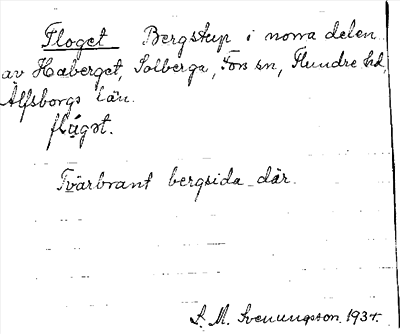 Floget Bergstup i norra delen
av Haberget, Solberga, Fors sn, Flundre hd,
Älfsborgs län.
flúgət.
Tvärbrant bergsida där.
S. M. Svenungsson 1934.